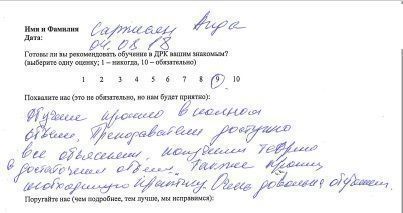 Имя и Фамилия Саркисян Аида
Дата: 04.08.18
Готовы ли вы рекомендовать обучение в ДРК вашим знакомым?
(выберите одну оценку; 1 – никогда, 10 – обязательно)
1 2 3 4 5 6 7 8 9 10
Похвалите нас (это не обязательно, но нам будет приятно):
Обучение прошло в полном
объеме. Преподаватели доступно
все объяснили, получили теорию
в достаточном объеме. Также прошли
необходимую практику. Очень довольна обучением.
Поругайте нас (чем подробнее, тем лучше, мы исправимся):